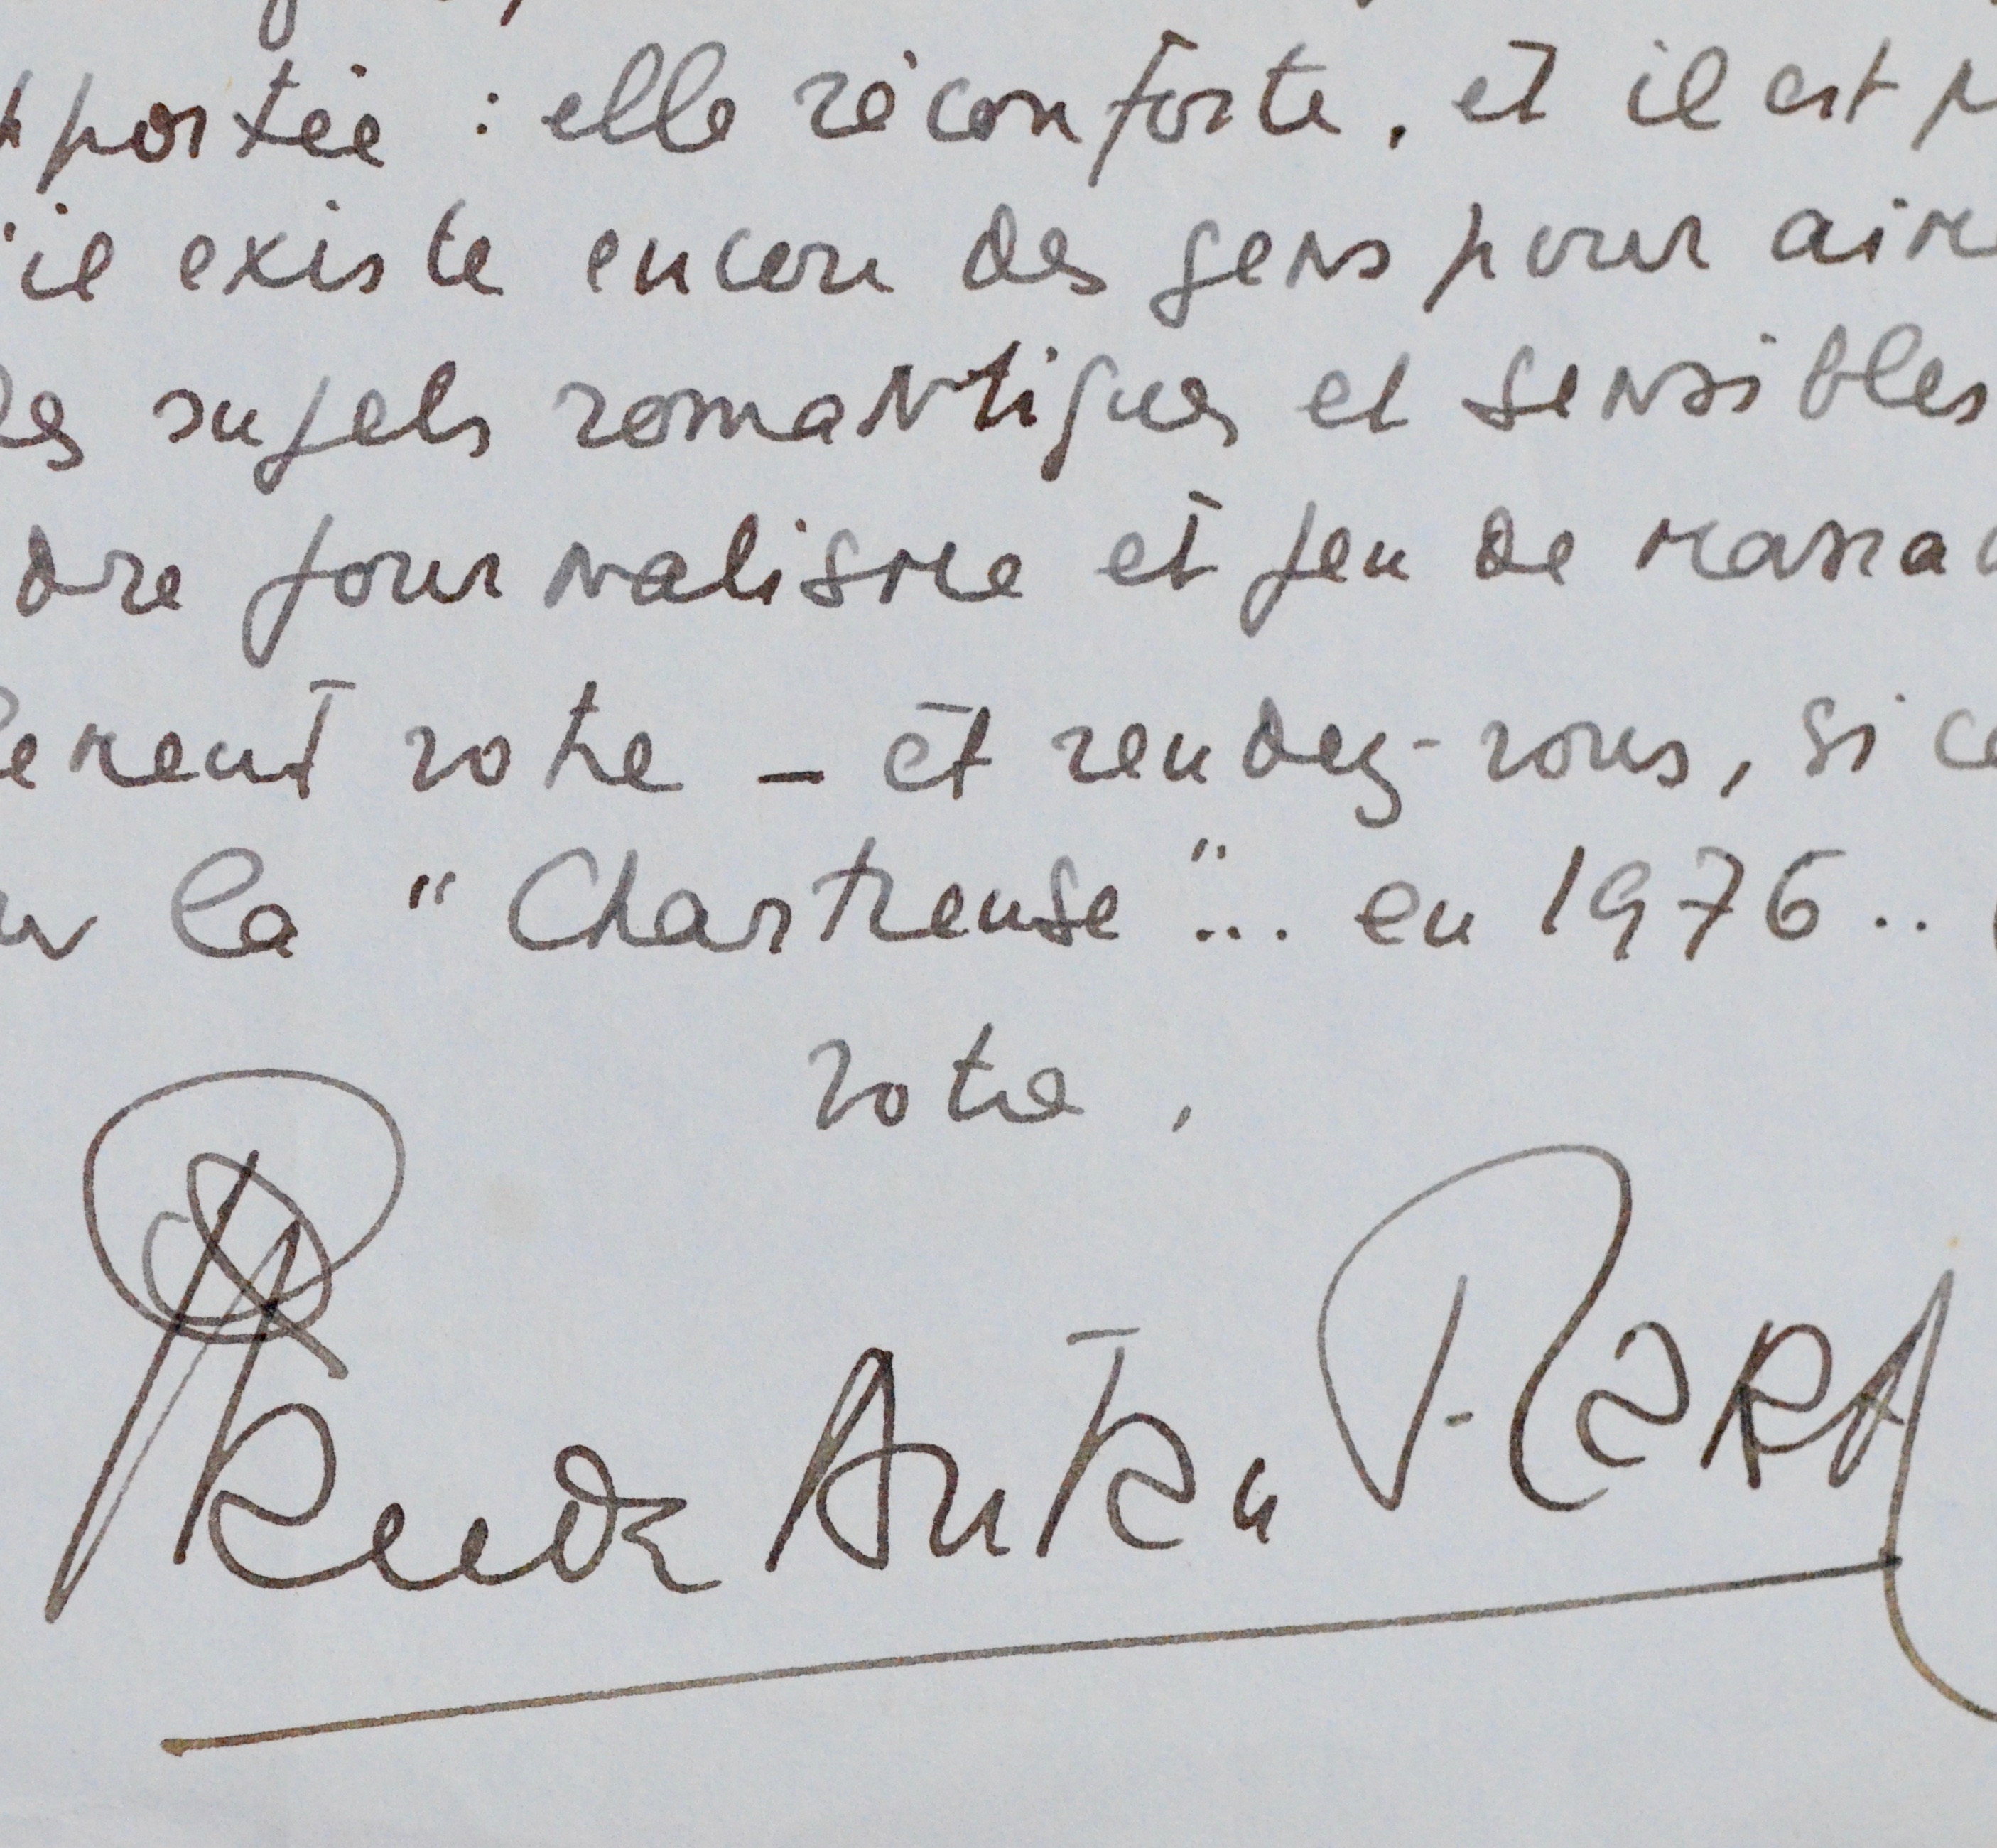 pportée : elle réconforte. et il est p
'il existe encore des gens pour aime
les sujets romantiques et sensibles
dre journalisme et jeu de massac
lement votre _ et rendez-vous, si ce
ur la "Chartreuse"... en 1976..
votre,
Claude Autant-Lara